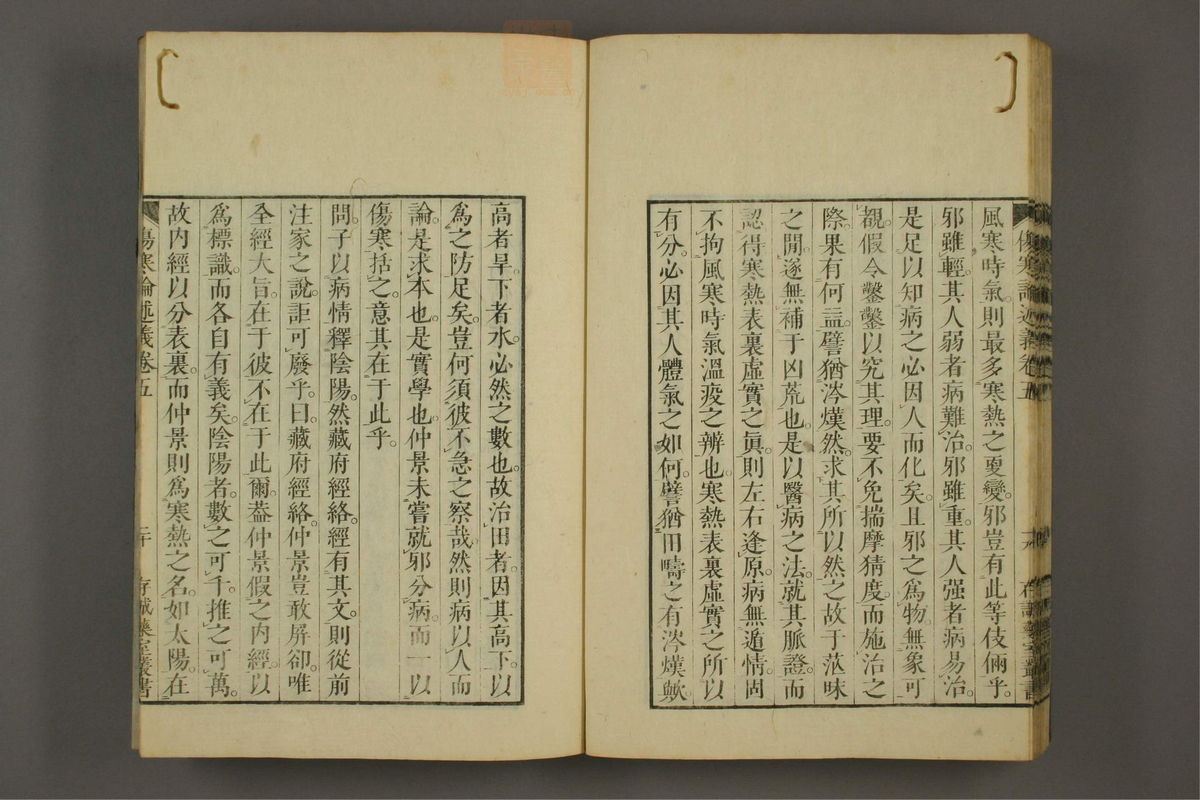 風寒時氣則最多寒熱之更變。邪豈有此等伎倆乎。
邪雖輕。其人弱者病難治。邪雖重。其人强者病易治。
是足以知病之必因人而化矣。且邪之爲物。無象可
覩。假令鑿鑿以究其理。要不免揣摩猜度。而施治之
際。果有何益。譬猶涔熯然。求其所以然之故于茫昧
之間。遂無補于凶荒也。是以醫病之法。就其脈證。而
認得寒熱表裏虛實之眞。則左右逢原。病無遁情。固
不拘風寒時氣溫疫之辨也。寒熱表裏虛實之所以
有分。必因其人體氣之如何。譬猶田疇之有涔熯歟。
傷寒論述義卷五
十九
存誠藥室叢書
高者旱。下者水。必然之數也。故治田者。因其高下。以
爲之防足矣。豈何須彼不急之察哉。然則病以人而
論。是求本也。是實學也。仲景未嘗就邪分病。而一以
傷寒括之。意其在于此乎。
問子以病情釋陰陽。然藏府經絡。經有其文。則從前
注家之說。詎可廢乎。曰。藏府經絡。仲景豈敢屏卻。唯
全經大旨。在于彼不在于此爾。葢仲景假之內經。以
爲標識。而各自有義矣。陰陽者。數之可千。推之可萬。
故內經以分表裏。而仲景則爲寒熱之名。如太陽。在
傷寒論述義卷五
二十
存誠藥室叢書